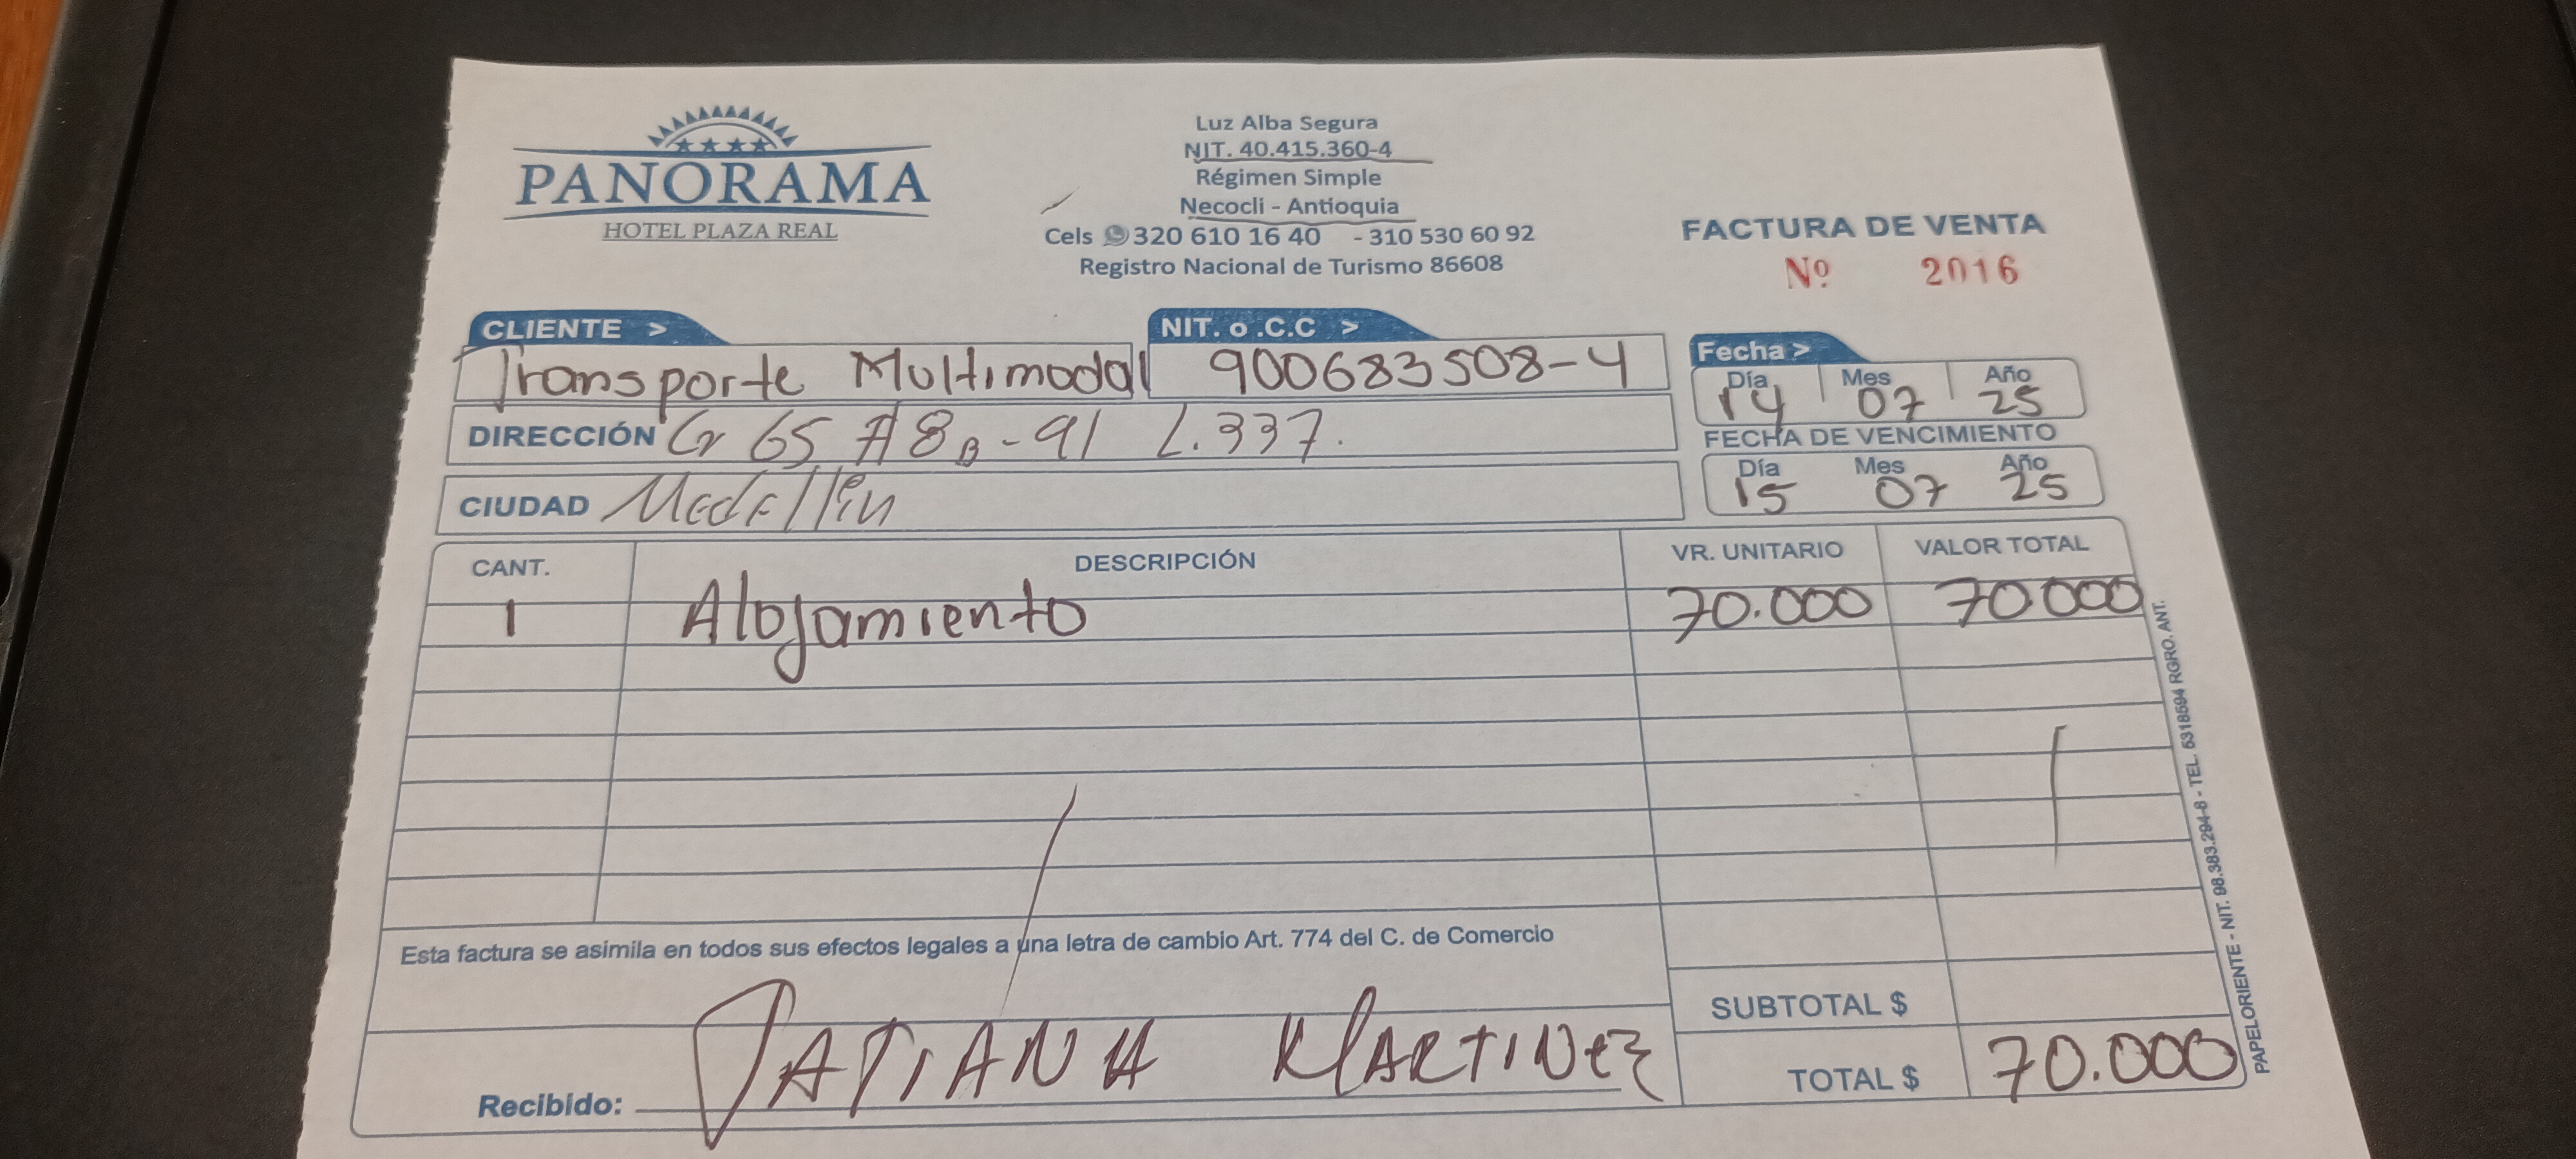 PANORAMA
HOTEL PLAZA REAL
Luz Alba Segura
NIT. 40.415.360-4
Régimen Simple
Necocli - Antioquia
Cels 320 610 16 40 - 310 530 60 92
Registro Nacional de Turismo 86608
FACTURA DE VENTA
Nº 2016
CLIENTE > NIT. o .C.C >
Transporte Multimodal 900683508-4
DIRECCIÓN Cr 65 #8B-91 L.337.
CIUDAD Medellin
Fecha >
Día Mes Año
14 07 25
FECHA DE VENCIMIENTO
Día Mes Año
15 07 25
CANT. DESCRIPCIÓN VR. UNITARIO VALOR TOTAL
1 Alojamiento 70.000 70000
Esta factura se asimila en todos sus efectos legales a una letra de cambio Art. 774 del C. de Comercio
SUBTOTAL $
TOTAL $ 70.000
Recibido: TATIANA MARTINEZ
PAPELORIENTE - NIT. 98.383.294-8 - TEL. 5318594 RGRO. ANT.